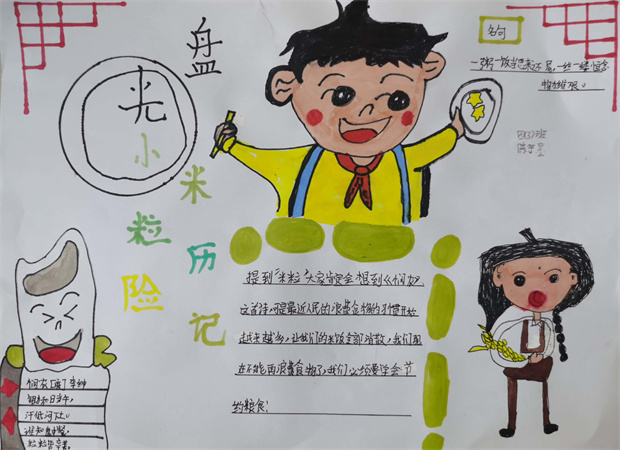 光盘
小米粒历险记
名句
一粥一饭当思来不易,一丝一缕恒念
物力维艰。
提到"米粒"大家就会想到《悯农》
这首诗,可是最近人民的浪费食物的习惯开始
越来越多,让我们的米饭全部消散,我们现
在不能再浪费食物了,我们必须要学会节
约粮食!
悯农[唐]李绅
锄禾日当午,
汗滴禾下土。
谁知盘中餐,
粒粒皆辛苦。